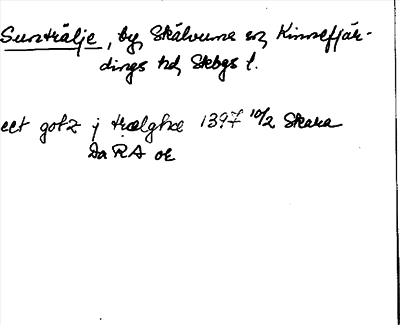 Sunträlje, by, Skälvums sn, Kinnefjär-
dings hd, Skbgs l.
eet gotz j trælghæ 1397 10/2 Skara
Da RA or